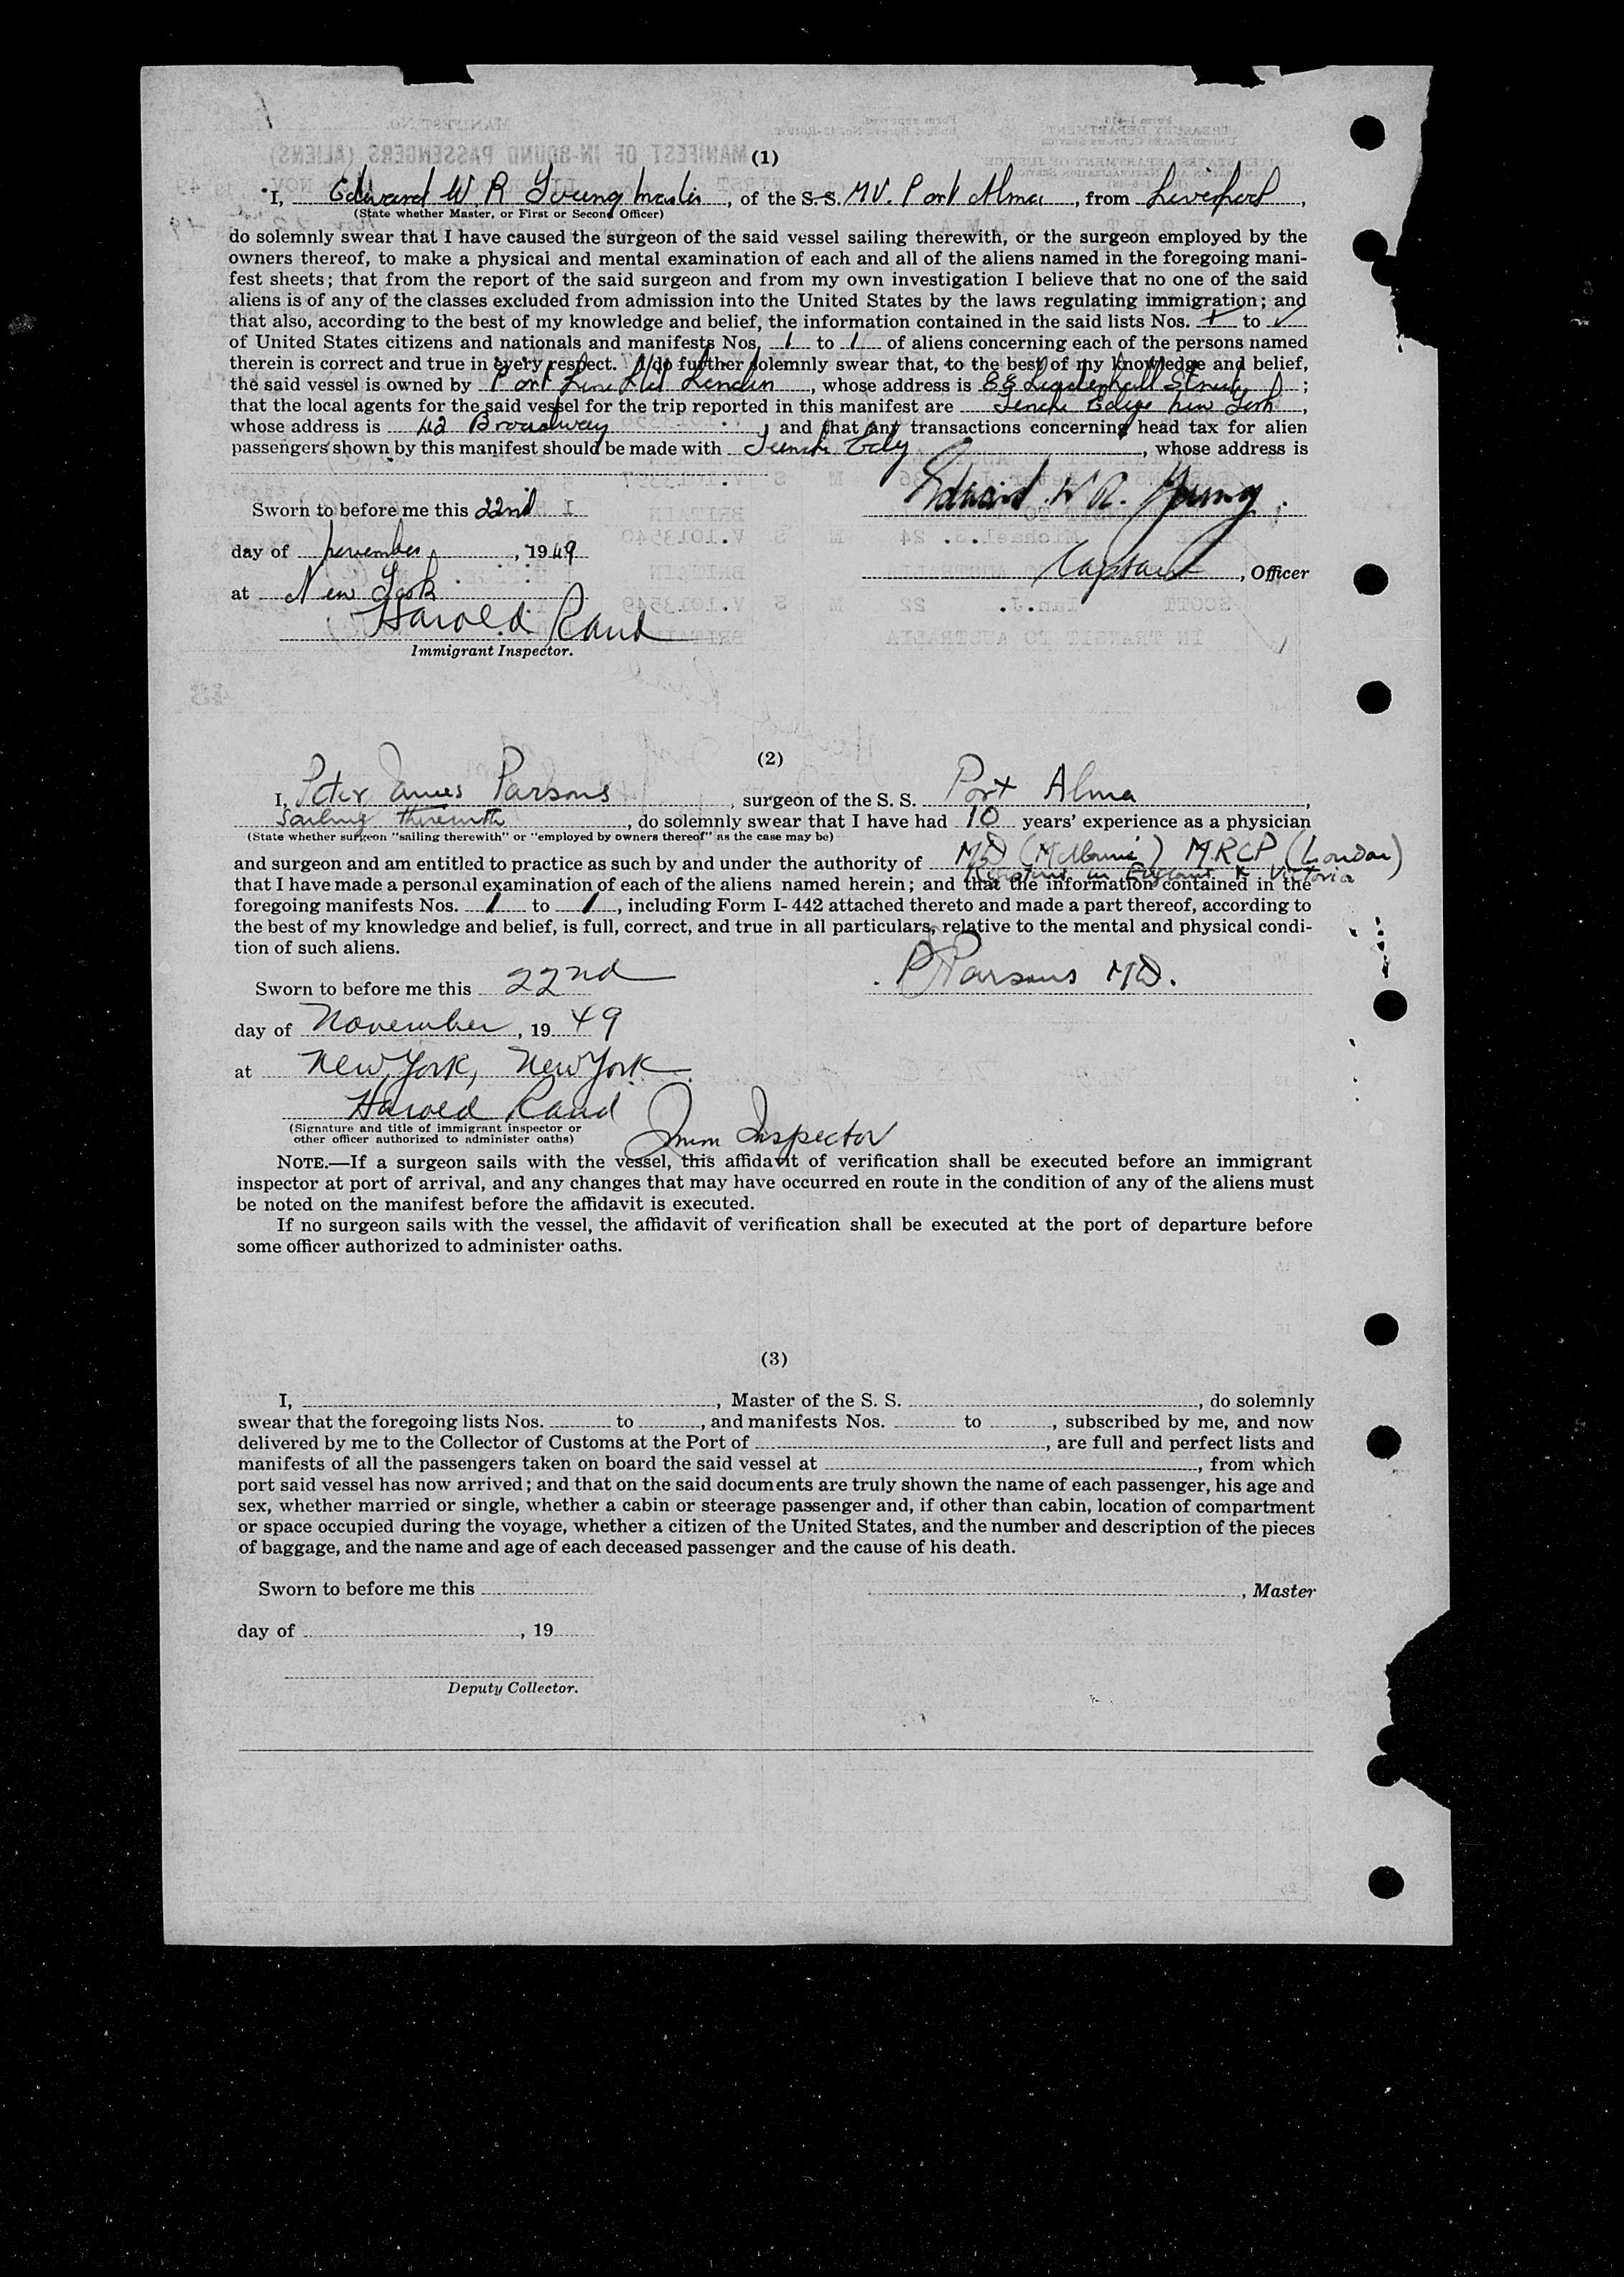 (1)
I, Edward W. R. Young Master, of the S. S. MV. Port Alma, from Liverpool,
(State whether Master, or First or Second Officer)
do solemnly swear that I have caused the surgeon of the said vessel sailing therewith, or the surgeon employed by the
owners thereof, to make a physical and mental examination of each and all of the aliens named in the foregoing mani-
fest sheets; that from the report of the said surgeon and from my own investigation I believe that no one of the said
aliens is of any of the classes excluded from admission into the United States by the laws regulating immigration; and
that also, according to the best of my knowledge and belief, the information contained in the said lists Nos. to
of United States citizens and nationals and manifests Nos. 1 to 1 of aliens concerning each of the persons named
therein is correct and true in every respect. I do further solemnly swear that, to the best of my knowledge and belief,
the said vessel is owned by Port Line Ltd London, whose address is 88 Leadenhall Street;
that the local agents for the said vessel for the trip reported in this manifest are New York,
whose address is 42 Broadway, and that any transactions concerning head tax for alien
passengers shown by this manifest should be made with, whose address is
Edward W R. Young
Sworn to before me this 22nd
day of November, 1949
Captain, Officer
at New York
Harold Rand
Immigrant Inspector.
(2)
I, Peter James Parsons, surgeon of the S. S. Port Alma,
Sailing therewith, do solemnly swear that I have had 10 years' experience as a physician
(State whether surgeon "sailing therewith" or "employed by owners thereof" as the case may be)
and surgeon and am entitled to practice as such by and under the authority of MD (Melbourne) MRCP (London)
in England & Victoria
that I have made a personal examination of each of the aliens named herein; and that the information contained in the
foregoing manifests Nos. 1 to 1, including Form I-442 attached thereto and made a part thereof, according to
the best of my knowledge and belief, is full, correct, and true in all particulars, relative to the mental and physical condi-
tion of such aliens.
P Parsons MD.
Sworn to before me this 22nd
day of November, 1949
at New York, New York
Harold Rand Imm Inspector
(Signature and title of immigrant inspector or
other officer authorized to administer oaths)
NOTE.—If a surgeon sails with the vessel, this affidavit of verification shall be executed before an immigrant
inspector at port of arrival, and any changes that may have occurred en route in the condition of any of the aliens must
be noted on the manifest before the affidavit is executed.
If no surgeon sails with the vessel, the affidavit of verification shall be executed at the port of departure before
some officer authorized to administer oaths.
(3)
I, , Master of the S. S. , do solemnly
swear that the foregoing lists Nos. to , and manifests Nos. to , subscribed by me, and now
delivered by me to the Collector of Customs at the Port of , are full and perfect lists and
manifests of all the passengers taken on board the said vessel at , from which
port said vessel has now arrived; and that on the said documents are truly shown the name of each passenger, his age and
sex, whether married or single, whether a cabin or steerage passenger and, if other than cabin, location of compartment
or space occupied during the voyage, whether a citizen of the United States, and the number and description of the pieces
of baggage, and the name and age of each deceased passenger and the cause of his death.
Sworn to before me this , Master
day of , 19
Deputy Collector.